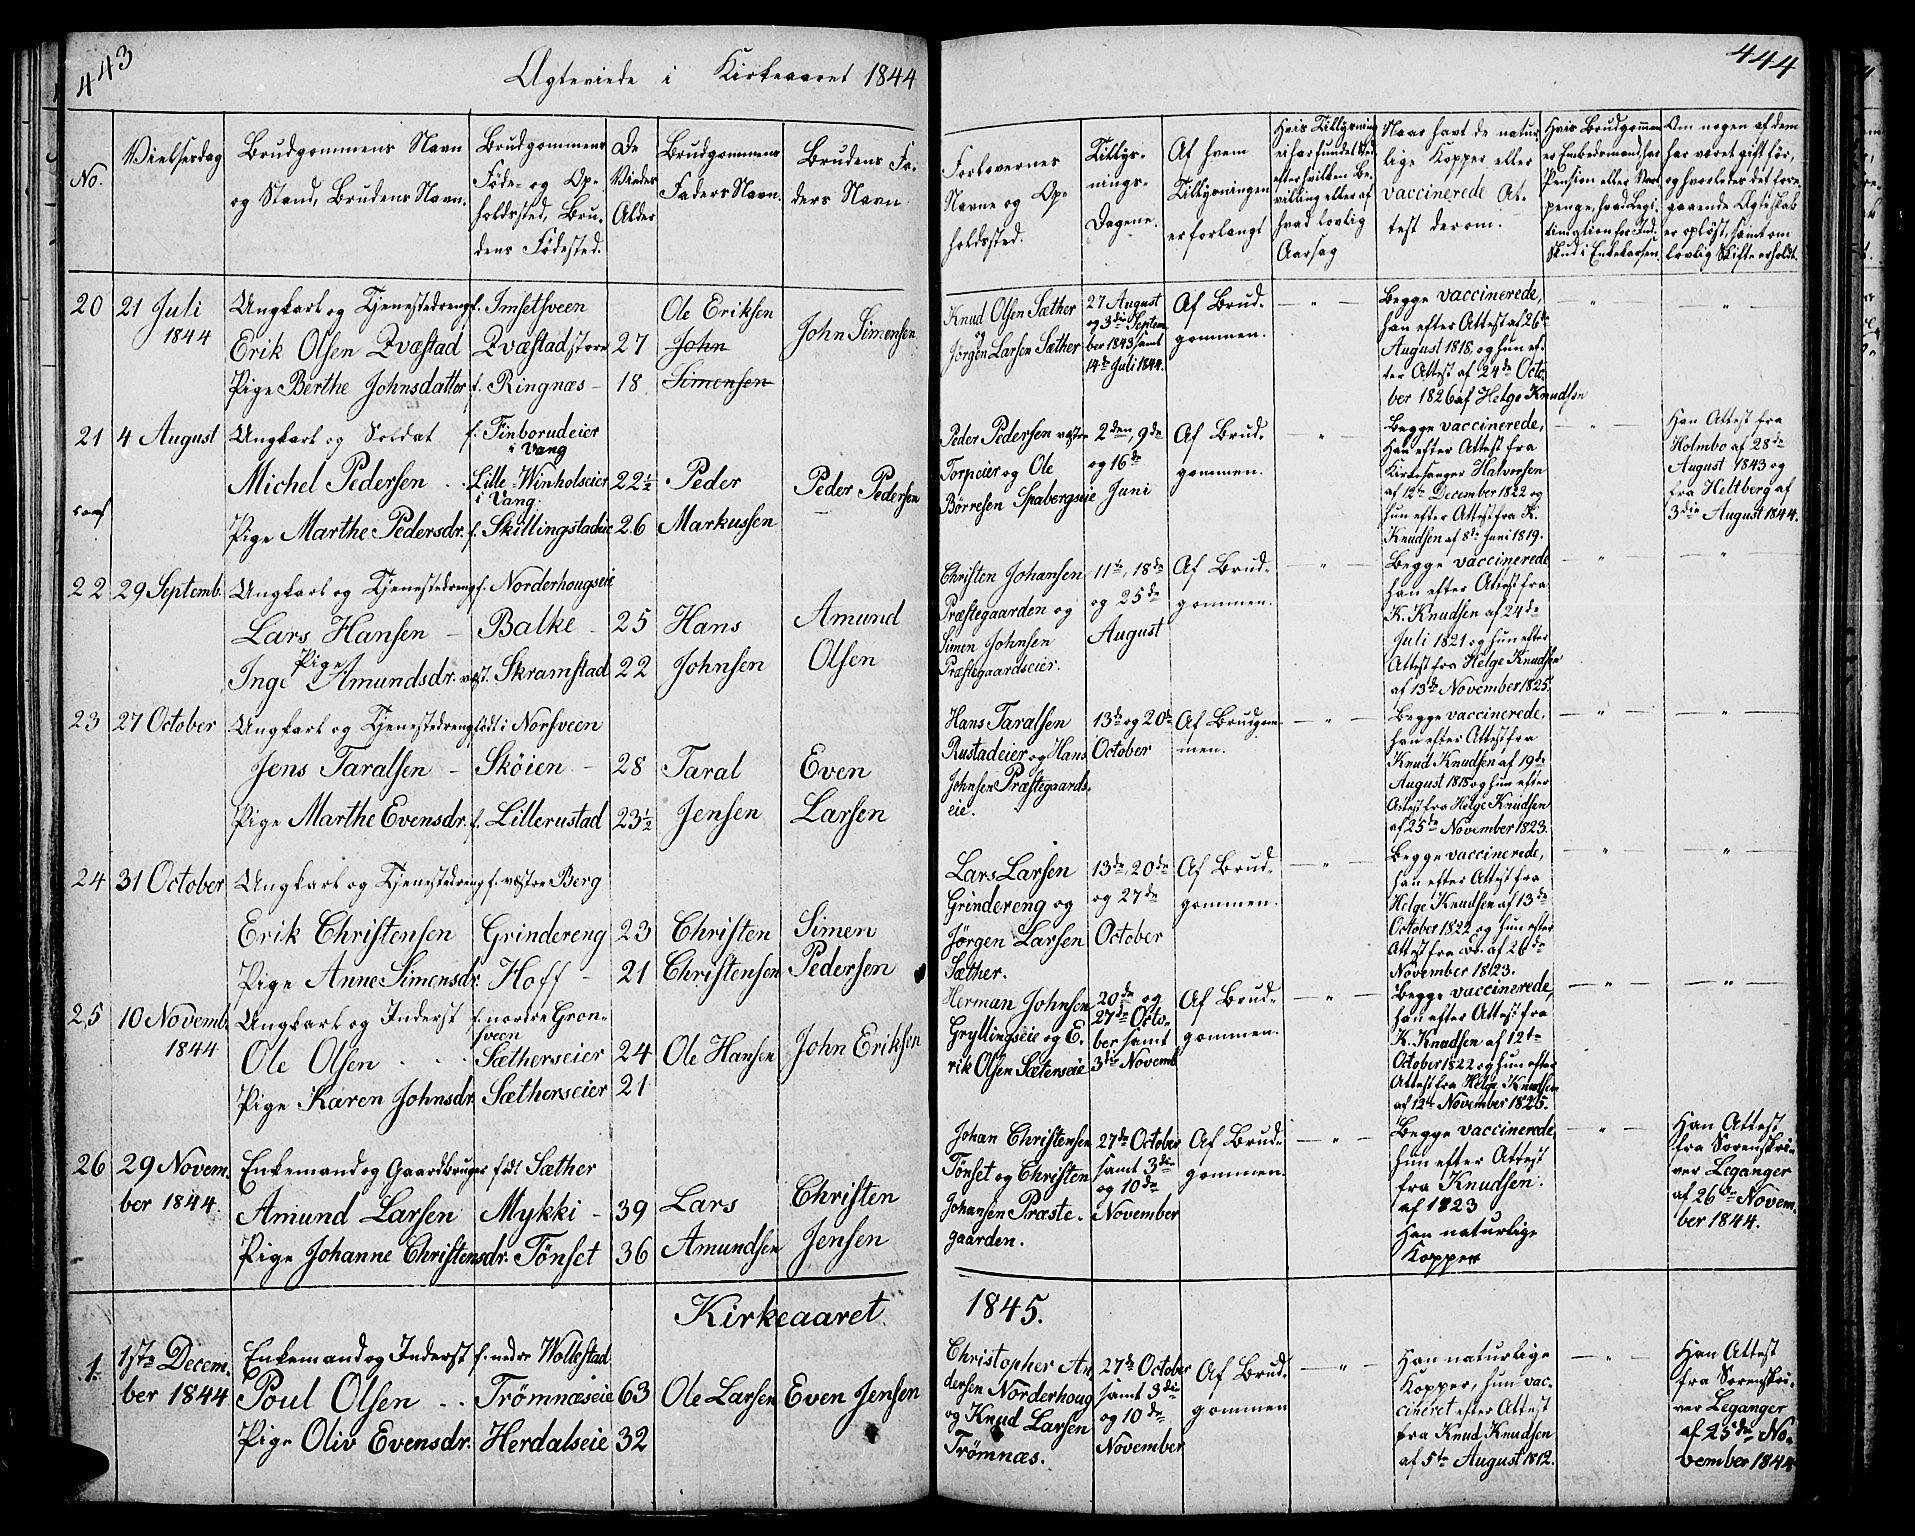 443
Ægteviede i Kirkeaaret 1844
444
No.
Vielsesdag
Brudgommens Navn
og Stand, Brudens Navn.
Brudgommens
Føde- og Op-
holdssted, Bru-
dens Fødested.
De
Viedes
Alder
Brudgommens
Faders Navn.
Brudens Fa-
ders Navn.
Forlovernes
Navne og Op-
holdssted.
Tillys-
nings-
Dagene.
Af hvem
Tillysningen
er forlangt
Hvis Tillysning
ei har fundet Sted
efter hvilken Be-
villing eller af
hvad lovlig
Aarsag
Naar havt de natur-
lige Kopper eller
vaccinerede At-
test derom.
Hvis Brudgommen
er Embedsmand, har
Pension eller Vart-
penge, hvad Legi-
timation for Ind-
skud i Enkekassen.
Om nogen af dem
har været gift før,
og hvorledes det fore-
gaaende Ægteskab
er opløst, samt om
lovlig Skifte erholdt.
20
21 Juli
1844
Ungkarl og Tjenestedreng
Erik Olsen Qvæstad
Pige Berthe Johnsdatter
f. Imsetsveen
Qvæstad store
f. Ringnæs
27
18
Ole Eriksen
John
Simensen
John Simensen
Knud Olsen Sæther
og
Jørgen Larsen Sæther
27 August
og 3die Septem-
ber 1843 samt
14de Juli 1844.
Af Brud-
gommen.
Begge vaccinerede,
han efter Attest af 26de
August 1818, og hun ef-
ter Attest af 24de Octo-
ber 1826 af Helge Knudsen
21
4 August
Ungkarl og Soldat
Michel Pedersen
Pige Marthe Pedersdr.
f. Finborudeier
i Vang
Lille-Winholseier
i Vang.
f. Skillingstadeie
22½
26
Peder
Markussen
Peder Pedersen
Peder Pedersen vestre
Torpeier og Ole
Børresen Spabergseie
2den, 9de
og 16de
Juni
Af Brud-
gommen.
Begge vaccinerede,
han efter Attest fra
Kirkesanger Halvorsen
af 12te December 1822 og
hun efter Attest fra K.
Knudsen af 8de Juni 1819.
Han Attest fra
Holmbo af 28de
August 1843 og
fra Heltberg af
3die August 1844.
22
29 Septemb.
Ungkarl og Tjenestedreng
Lars Hansen
Pige
Inge Amundsdr.
f. Norderhougseie
Balke
væst. Skramstad
25
22
Hans
Johnsen
Amund
Olsen
Christen Johansen
Præstegaarden og
Simen Johnsen
Præstegaardseier.
11te, 18de
og 25de
August
Af Brud-
gommen.
Begge vaccinerede
han efter Attest fra
K. Knudsen af 24de
Juli 1821 og hun efter
Attest fra Helge Knudsen
af 13de November 1825.
23
27 October
Ungkarl og Tjenestedreng
Jens Taralsen
Pige Marthe Evensdr.
født i Norsveen
Skøien
f. Lillerustad
28
23½
Taral
Jensen
Even
Larsen
Hans Taralsen
Rustadeier og Hans
Johnsen Præstegaards-
eie.
13de og 20de
October
Af Brudgom-
men.
Begge vaccinerede,
han efter Attest fra
Knud Knudsen af 19de
August 1818 og hun efter
Attest fra Helge Knudsen
af 25de November 1823.
24
31 October
Ungkarl og Tjenestedreng
Erik Christensen
Pige Anne Simensdr.
f. væstre Berg
Grindereng
Hoff
23
21
Christen
Christensen
Simen
Pedersen
Lars Larsen
Grindereng og
Jørgen Larsen
Sæther.
13de, 20de
og 27de
October
Af Brud-
gommen.
Begge vaccinerede,
han efter Attest fra
Helge Knudsen af 13de
October 1822 og hun efter
Attest fra do. af 26de
November 1823.
25
10 Novemb.
1844
Ungkarl og Inderst
Ole Olsen
Pige Karen Johnsdr.
f. nordre Gron-
sveen
Sætherseier
Sætherseier
24
21
Ole Hansen
John Eriksen
Herman Johnsen
Gryllingseie og E-
rik Olsen Sæterseie
20de og
27de Octo-
ber samt
3die Novemb.
Af Brud-
gommen.
Begge vaccinerede,
han efter Attest fra
K. Knudsen af 12te
October 1822 og hun efter
Attest fra Helge Knudsen
af 12te November 1825.
26
29 Novem-
ber 1844.
Enkemand og Gaardbruger
Amund Larsen
Pige Johanne Christensdr.
født Sæther
Mykki
Tønset
39
36
Lars
Amundsen
Christen
Jensen
Johan Christensen
Tønset og Christen
Johansen Præste-
gaarden.
27de October
samt 3die
og 10de
November
Af Brud-
gommen.
Begge vaccinerede
hun efter Attest
fra Knudsen.
af 1823
Han naturlige
Kopper
Han Attest
fra Sorenskri-
ver Leganger
af 26de Novem-
ber 1844.
Kirkeaaret 1845.
1.
1ste Decem-
ber 1844
Enkemand og Inderst
Poul Olsen
Pige Oliv Evensdr.
f. nedre Wollestad
Trømnæseie
Herdalseie
63
32
Ole Larsen
Even Jensen
Christopher An-
dersen Norderhoug
og Knud Larsen
Trømnæs.
27de October
samt 3die
og 10de
November
Af Brud-
gommen
Han naturlige
Kopper, hun vac-
cineret efter Attest
fra Knud Knudsen
af 5te August 1812.
Han Attest
fra Sorenskri-
ver Leganger
af 25de No-
vember 1844